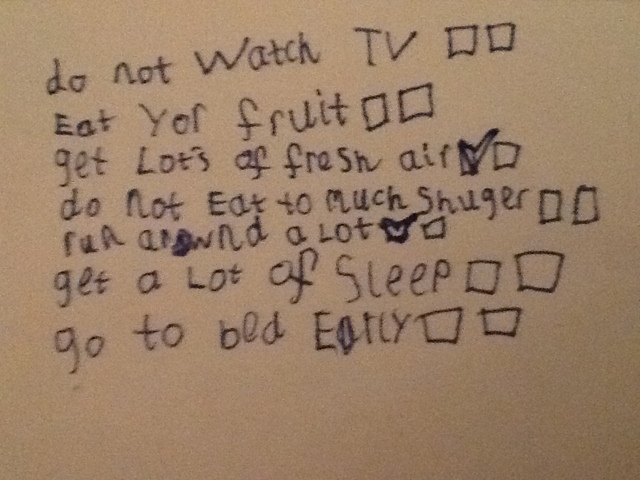 do not Watch TV
Eat Yor fruit
get Lot's of fresh air
do not Eat to much Shuger
run arownd a Lot
get a Lot of Sleep
go to bed Early